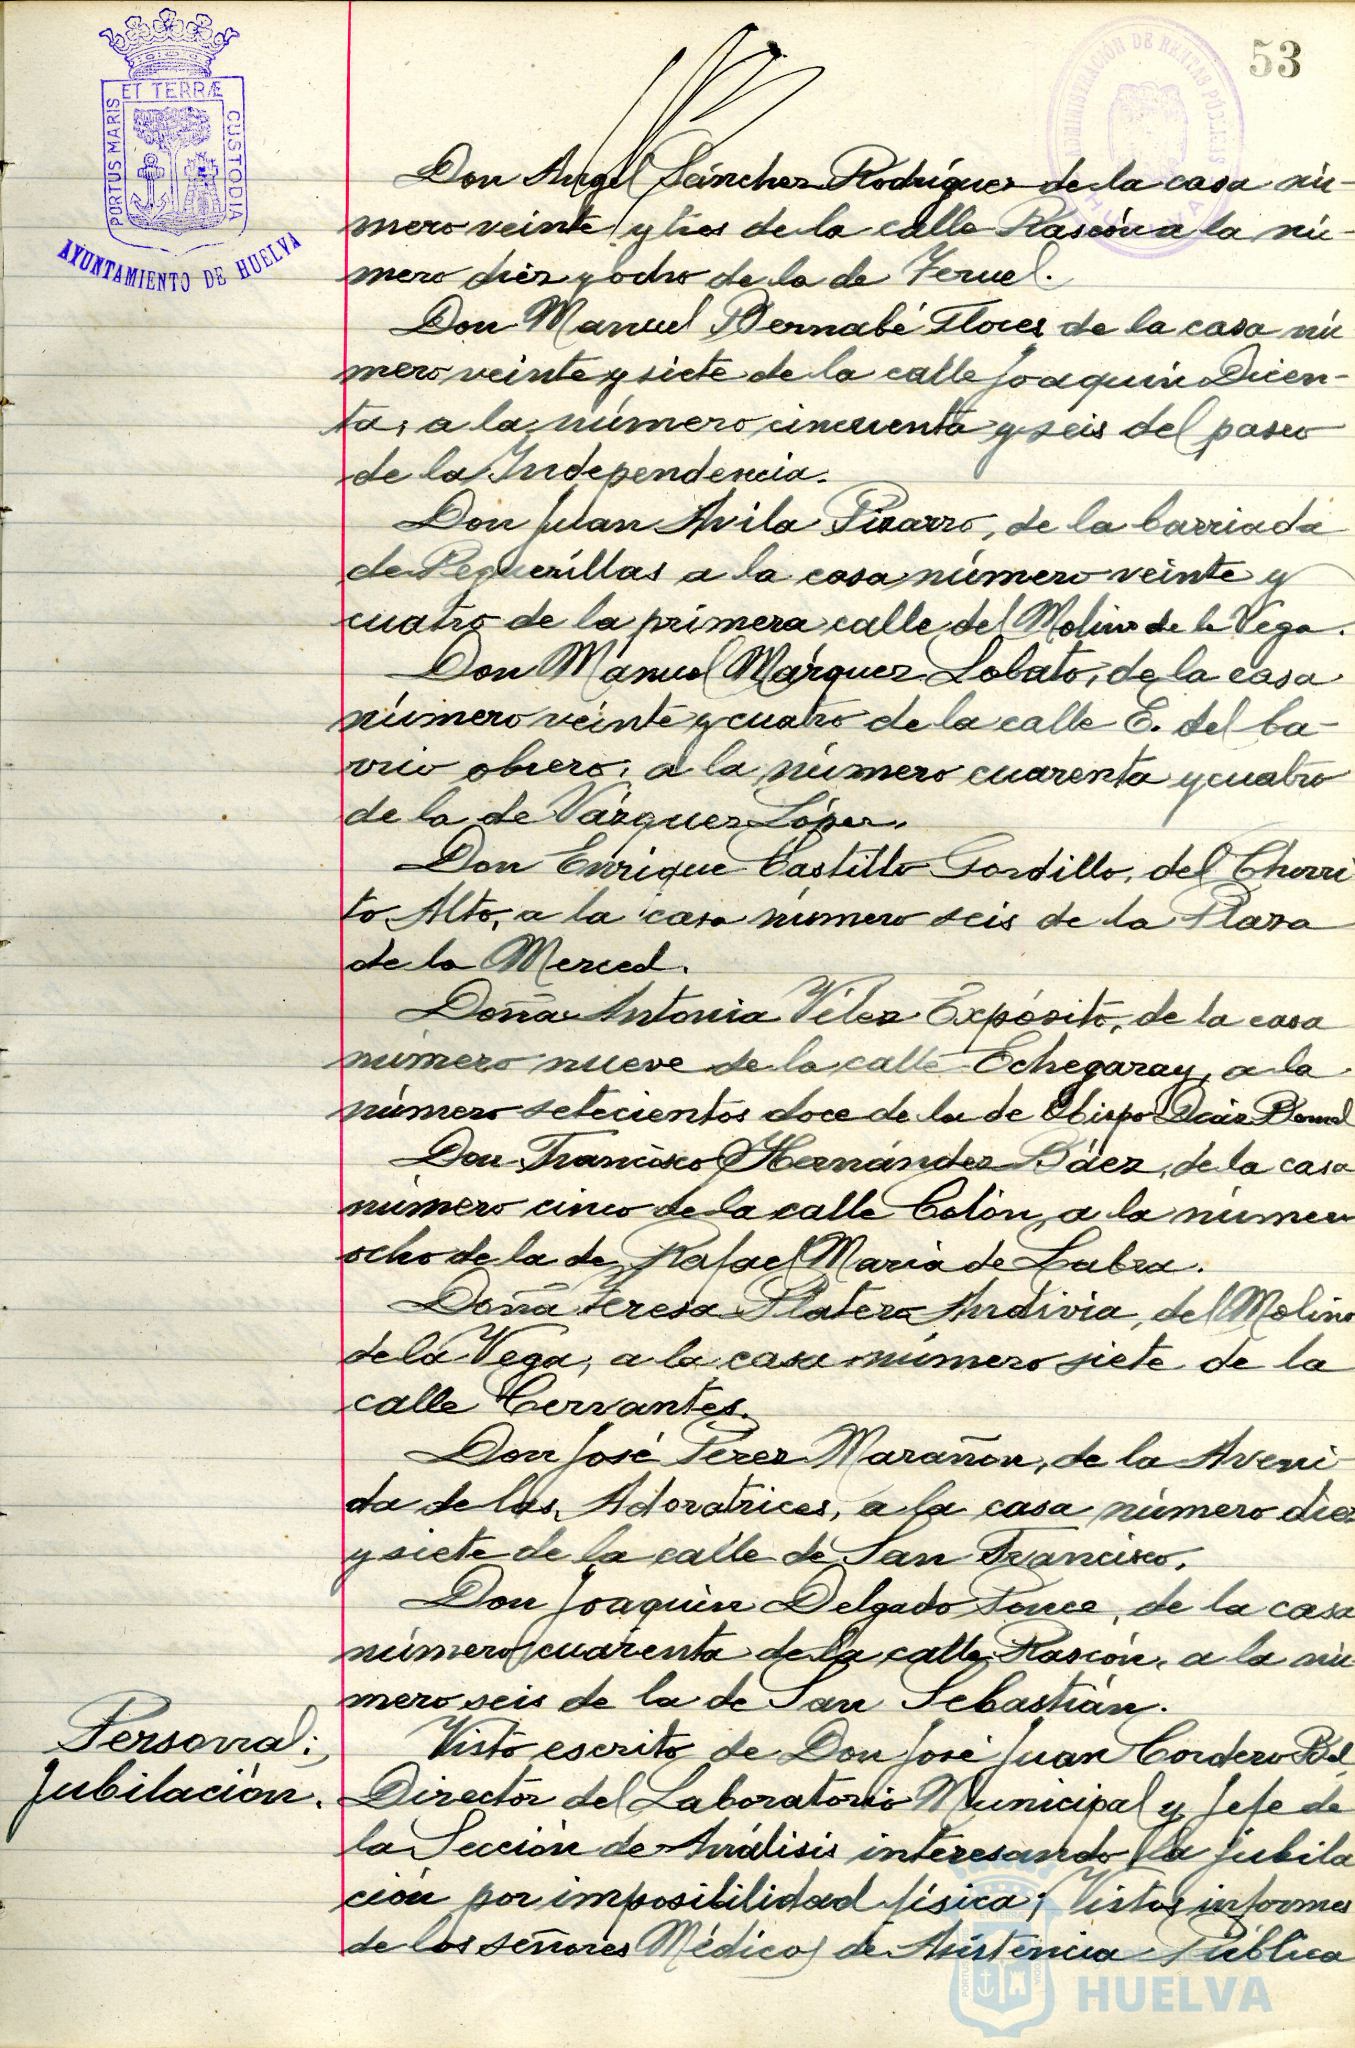 53
ET TERRÆ
PORTUS MARIS
CUSTODIA
AYUNTAMIENTO DE HUELVA
ADMINISTRACIÓN DE RENTAS PÚBLICAS
HUELVA
Don Angel Sánchez Rodríguez de la casa nú-
mero veinte y tres de la calle Rascón a la nú-
mero diez y ocho de la de Teruel.
Don Manuel Bernabé Flores de la casa nú
mero veinte y siete de la calle Joaquín Dicen-
ta, a la número cincuenta y seis del paseo
de la Independencia.
Don Juan Avila Pizarro, de la barriada
de Peguerillas a la casa número veinte y
cuatro de la primera calle del Molino de la Vega.
Don Manuel Márquez Lobato, de la casa
número veinte y cuatro de la calle E. del ba-
rrio obrero, a la número cuarenta y cuatro
de la de Vázquez López.
Don Enrique Castillo Gordillo, del Chorri
to Alto, a la casa número seis de la Plaza
de la Merced.
Doña Antonia Vélez Expósito, de la casa
número nueve de la calle Echegaray, a la
número setecientos doce de la de Obispo Díaz Bernal
Don Francisco Hernández Báez, de la casa
número cinco de la calle Colón, a la número
ocho de la de Rafael María de Labra.
Doña Teresa Platero Andivia, del Molino
de la Vega, a la casa número siete de la
calle Cervantes.
Don José Pérez Marañón, de la Aveni-
da de las Adoratrices, a la casa número diez
y siete de la calle de San Francisco.
Don Joaquín Delgado Ponce, de la casa
número cuarenta de la calle Rascón, a la nú
mero seis de la de San Sebastián.
Personal:
Jubilación.
Visto escrito de Don José Juan Cordero Bel,
Director del Laboratorio Municipal y Jefe de
la Sección de Análisis interesando la jubila
ción por imposibilidad física; Vistos informes
de los señores Médicos de Asistencia Pública
HUELVA